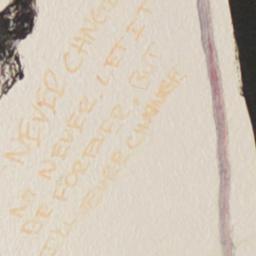 NEVER CHANGE
NO NEVER. LET IT
BE FOREVER. BUT
I'LL NEVER CHANGE